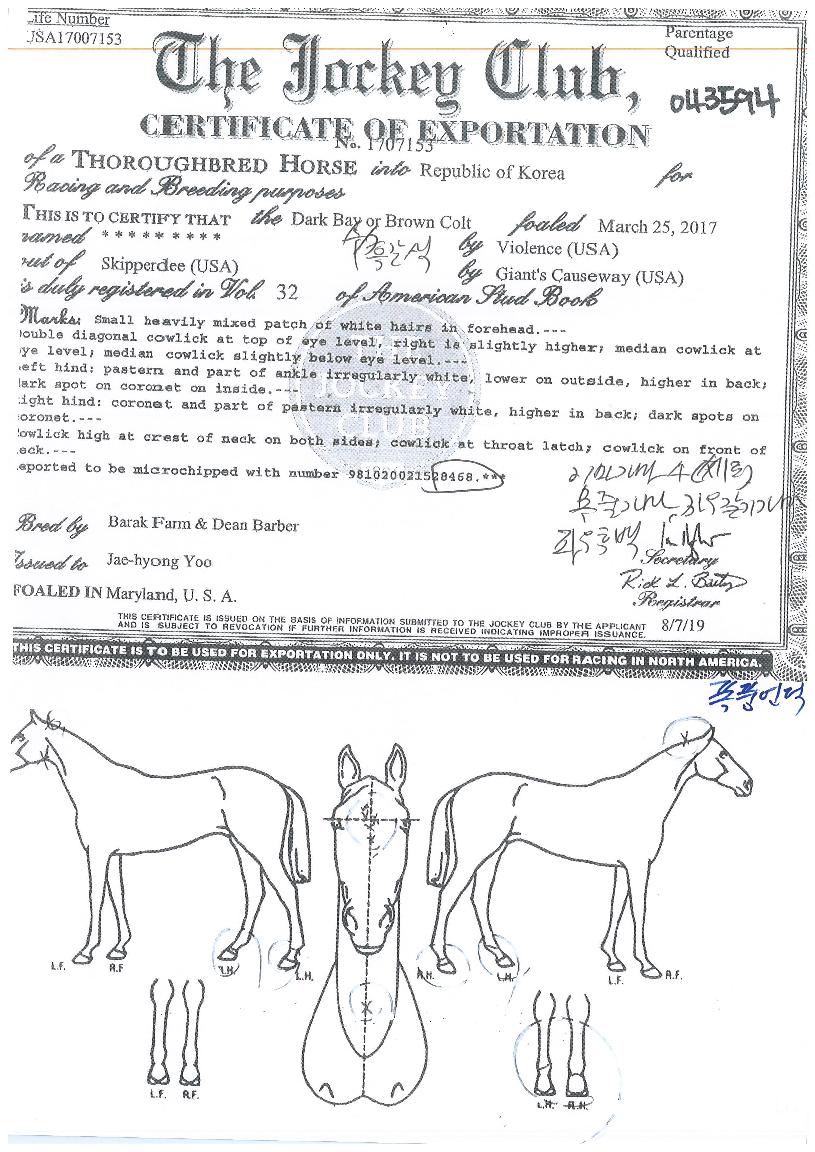 Life Number
USA17007153
Parentage
Qualified
The Jockey Club,
043594
CERTIFICATE OF EXPORTATION
No. 1707153
of a THOROUGHBRED HORSE into Republic of Korea for
Racing and Breeding purposes
THIS IS TO CERTIFY THAT the Dark Bay or Brown Colt foaled March 25, 2017
named * * * * * * * * * by Violence (USA)
out of Skipperdee (USA) by Giant's Causeway (USA)
is duly registered in Vol. 32 of American Stud Book
Marks: Small heavily mixed patch of white hairs in forehead.---
ouble diagonal cowlick at top of eye level, right is slightly higher; median cowlick at
ye level; median cowlick slightly below eye level.---
eft hind: pastern and part of ankle irregularly white, lower on outside, higher in back;
ark spot on coronet on inside.---
ight hind: coronet and part of pastern irregularly white, higher in back; dark spots on
oronet.---
owlick high at crest of neck on both sides; cowlick at throat latch; cowlick on front of
eck.---
eported to be microchipped with number 981020021528468.***
JOCKEY
CLUB
Bred by Barak Farm & Dean Barber
Issued to Jae-hyong Yoo
Secretary
Rick L. Bailey
Registrar
FOALED IN Maryland, U. S. A.
THIS CERTIFICATE IS ISSUED ON THE BASIS OF INFORMATION SUBMITTED TO THE JOCKEY CLUB BY THE APPLICANT
AND IS SUBJECT TO REVOCATION IF FURTHER INFORMATION IS RECEIVED INDICATING IMPROPER ISSUANCE.
8/7/19
THIS CERTIFICATE IS TO BE USED FOR EXPORTATION ONLY. IT IS NOT TO BE USED FOR RACING IN NORTH AMERICA.
폭풍언덕
L.F. R.F L.H. R.H. L.H. L.F. R.F.
L.F. R.F. L.H. R.H.